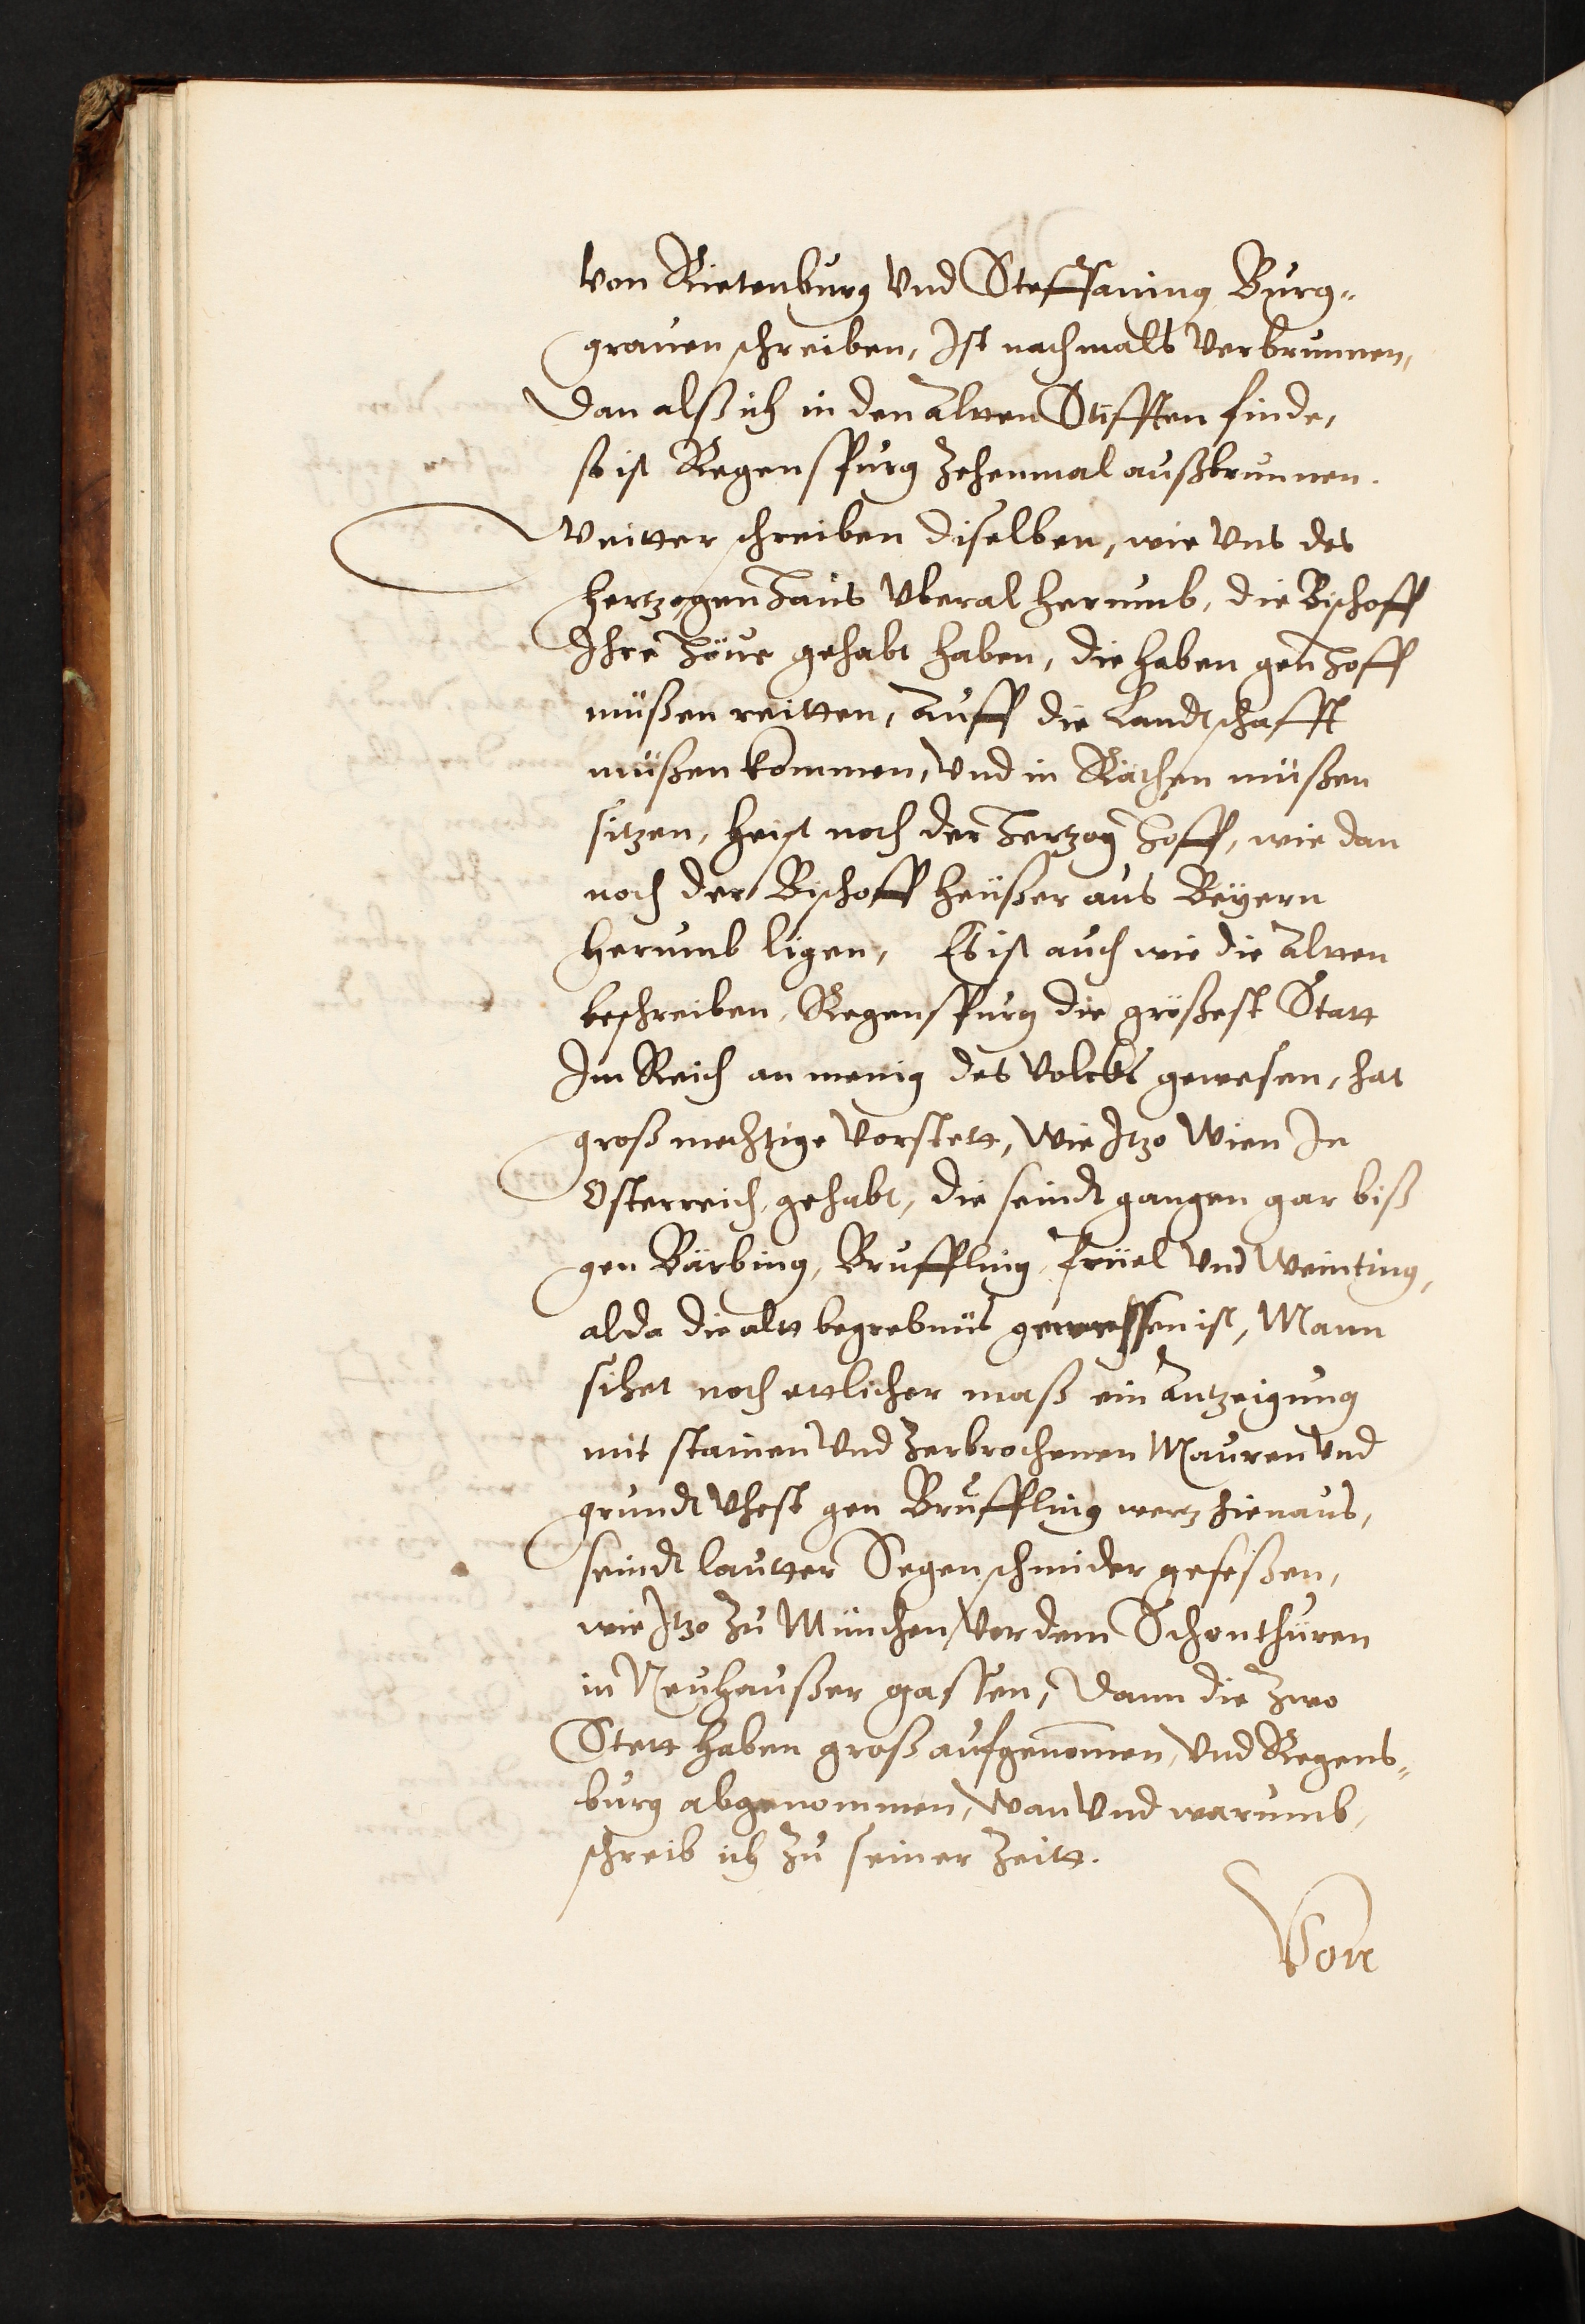 von Rietenburg vnd Steffaning Burg¬
grauen schreiben, Ist nachmals verbrunnen,
dan alß ich in den Altten Stifften finde,
so ist Regenspurg Zehenmal außbrunnen.
Weitter schreiben diselben, wie vns des
hertzogen Haus vberal herumb, die Bischoff
Ihre Höue gehabt haben, die haben gen Hoff
müßen reitten, Auff die Landtschafft
müßen kommen, vnd in Räthen müßen
sitzen, heist noch der Hertzog Hoff, wie dan
noch der Bischoff heüßer aus Beÿern
herumb ligen, Es ist auch wie die Altten
beschreiben, Regenspurg die größest Statt
Im Reich an menig des Volcks gewesen, hat
groß mechtige vorstett, wie Itzo Wien In
Osterreich, gehabt, die seindt gangen gar biß
gen Bärbing, Bruffling, Prüel vnd Weinting,
alda die altt begrebnüs gewessen ist, Mann
sihet noch ettlicher maß ein Antzeigung
mit stainen vnd Zerbrochenen Mauren vnd
grundt vhest gen Bruffling wertz hienaus,
seindt lautter Segenschmider geseßen,
wie Itzo Zu München, vor dem Schonthuren
in Neuhaußer gassen, Dann die Zwo
Stett haben groß aufgenomen, vnd Regens¬
burg abgenommen, Wan vnd warumb,
schreib ich Zu seiner Zeitt.
Von